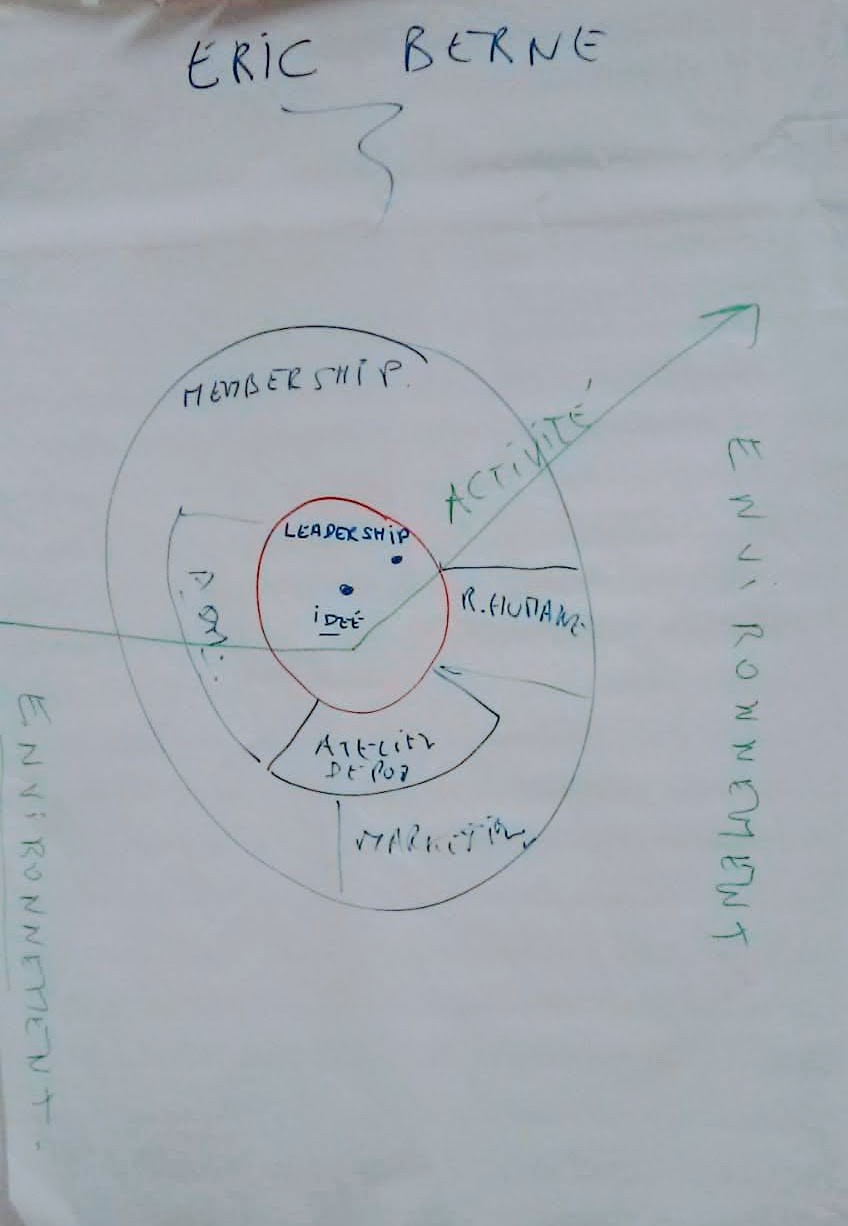 ERIC BERNE
MEMBERSHIP.
ACTIVITÉ
LEADERSHIP
IDEÉ
R.HUMAINE
ATELIER
MARKETING
ENVIRONNEMENT
ENVIRONNEMENT.